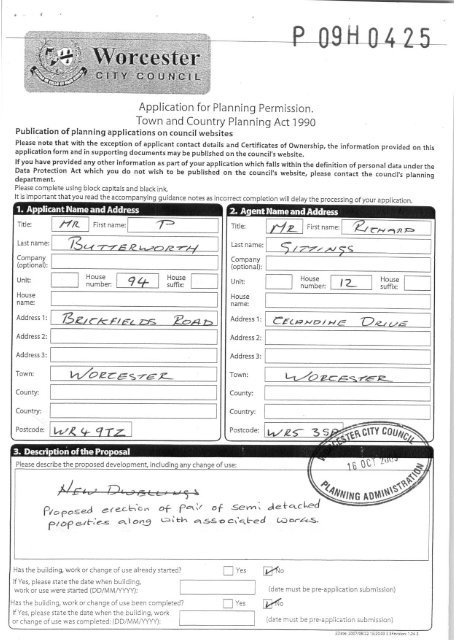 P 09H0425
Worcester
CITY COUNCIL
Application for Planning Permission.
Town and Country Planning Act 1990
Publication of planning applications on council websites
Please note that with the exception of applicant contact details and Certificates of Ownership, the information provided on this
application form and in supporting documents may be published on the council's website.
If you have provided any other information as part of your application which falls within the definition of personal data under the
Data Protection Act which you do not wish to be published on the council's website, please contact the council's planning
department.
Please complete using block capitals and black ink.
It is important that you read the accompanying guidance notes as incorrect completion will delay the processing of your application.
1. Applicant Name and Address
Title: MR First name: P
Last name: BUTTERWORTH
Company
(optional):
Unit: House number: 94 House suffix:
House
name:
Address 1: BRICKFIELDS ROAD
Address 2:
Address 3:
Town: WORCESTER
County:
Country:
Postcode: WR4 9TZ
2. Agent Name and Address
Title: MR First name: RICHARD
Last name: GITTINGS
Company
(optional):
Unit: House number: 12 House suffix:
House
name:
Address 1: CELANDINE DRIVE
Address 2:
Address 3:
Town: WORCESTER
County:
Country:
Postcode: WR5 3SP
WORCESTER CITY COUNCIL
16 OCT
PLANNING ADMINISTRATION
3. Description of the Proposal
Please describe the proposed development, including any change of use:
NEW DWELLINGS
Proposed erection of pair of semi detached
properties along with associated works.
Has the building, work or change of use already started? Yes No
If Yes, please state the date when building,
work or use were started (DD/MM/YYYY): (date must be pre-application submission)
Has the building, work or change of use been completed? Yes No
If Yes, please state the date when the building, work
or change of use was completed: (DD/MM/YYYY): (date must be pre-application submission)